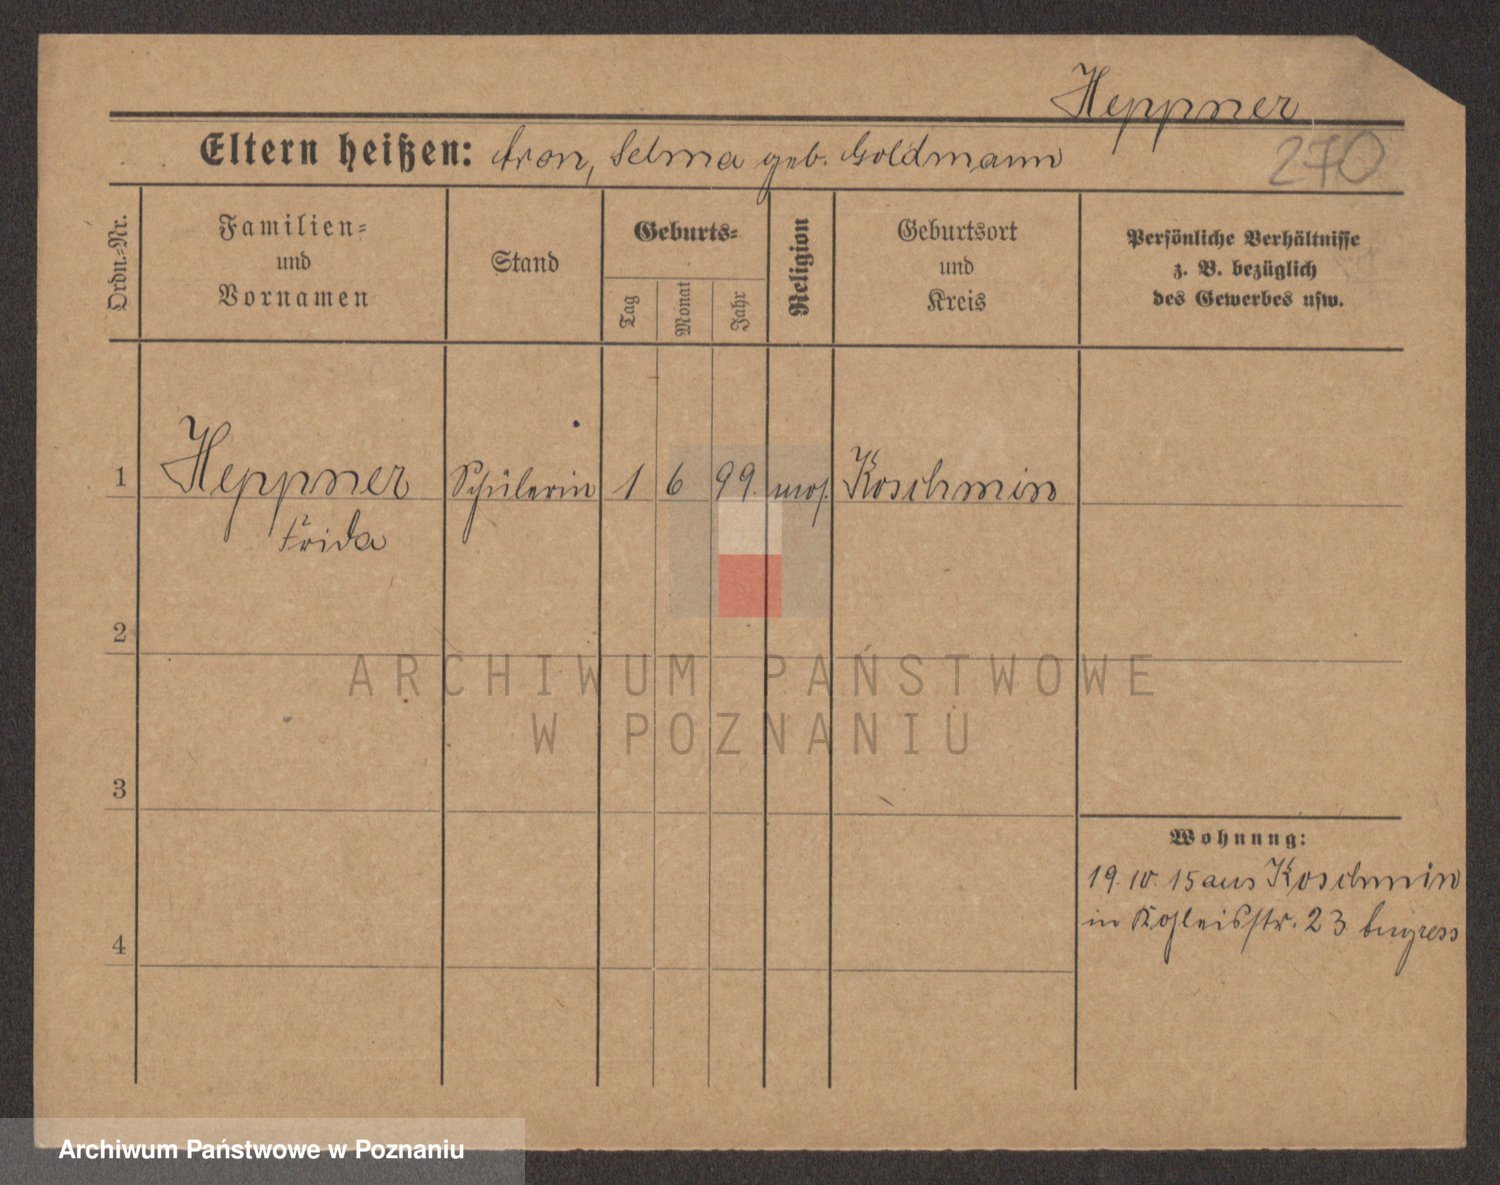 Heppner
Eltern heißen: Aron, Selma geb. Goldmann
270
Ordn.=Nr.
Familien=
und
Vornamen
Stand
Geburts=
Tag
Monat
Jahr
Religion
Geburtsort
und
Kreis
Persönliche Verhältnisse
z. B. bezüglich
des Gewerbes usw.
1 Heppner Schülerin 1 6 99. mos. Koschmin
Frida
2
3
4
Wohnung:
19. 10. 15 aus Koschmin
in 23
ARCHIWUM PAŃSTWOWE
W POZNANIU
Archiwum Państwowe w Poznaniu